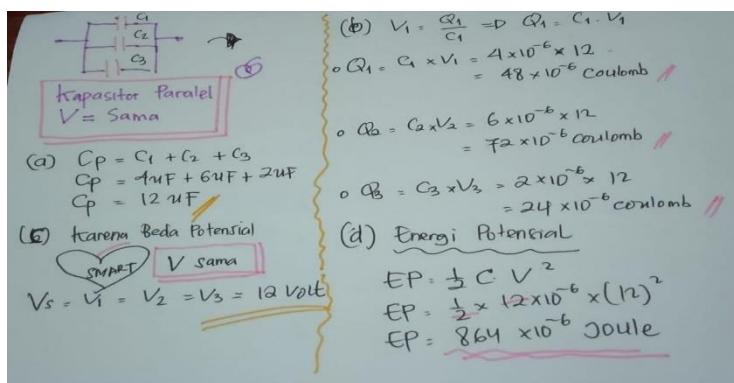 C1
C2
C3
Kapasitor Paralel
V = Sama
(a) Cp = C1 + C2 + C3
Cp = 4uF + 6uF + 2uF
Cp = 12 uF
(c) Karena Beda Potensial
SMART
V sama
Vs = V1 = V2 = V3 = 12 Volt
(b) V1 = Q1/C1 => Q1 = C1 . V1
o Q1 = C1 x V1 = 4x10^-6 x 12
= 48 x10^-6 Coulomb
o Q2 = C2 x V2 = 6x10^-6 x 12
= 72 x10^-6 coulomb
o Q3 = C3 x V3 = 2x10^-6 x 12
= 24 x10^-6 coulomb
(d) Energi Potensial
EP = 1/2 C V^2
EP = 1/2 x 12x10^-6 x (12)^2
EP = 864 x10^-6 Joule